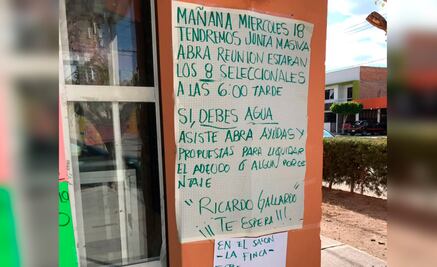 MAÑANA MIERCOLES 18
TENDREMOS JUNTA MASIVA
ABRA REUNION ESTARAN
LOS 8 SELECCIONALES
A LAS 6:00 TARDE
SI, DEBES AGUA
ASISTE ABRA AYUDAS Y
PROPUESTAS PARA LIQUIDAR
EL ADEUDO Ó ALGUN PORCE
NTAJE
"RICARDO GALLARDO"
¡¡¡TE ESPERA!!!
EN EL SALON
-LA FINCA-